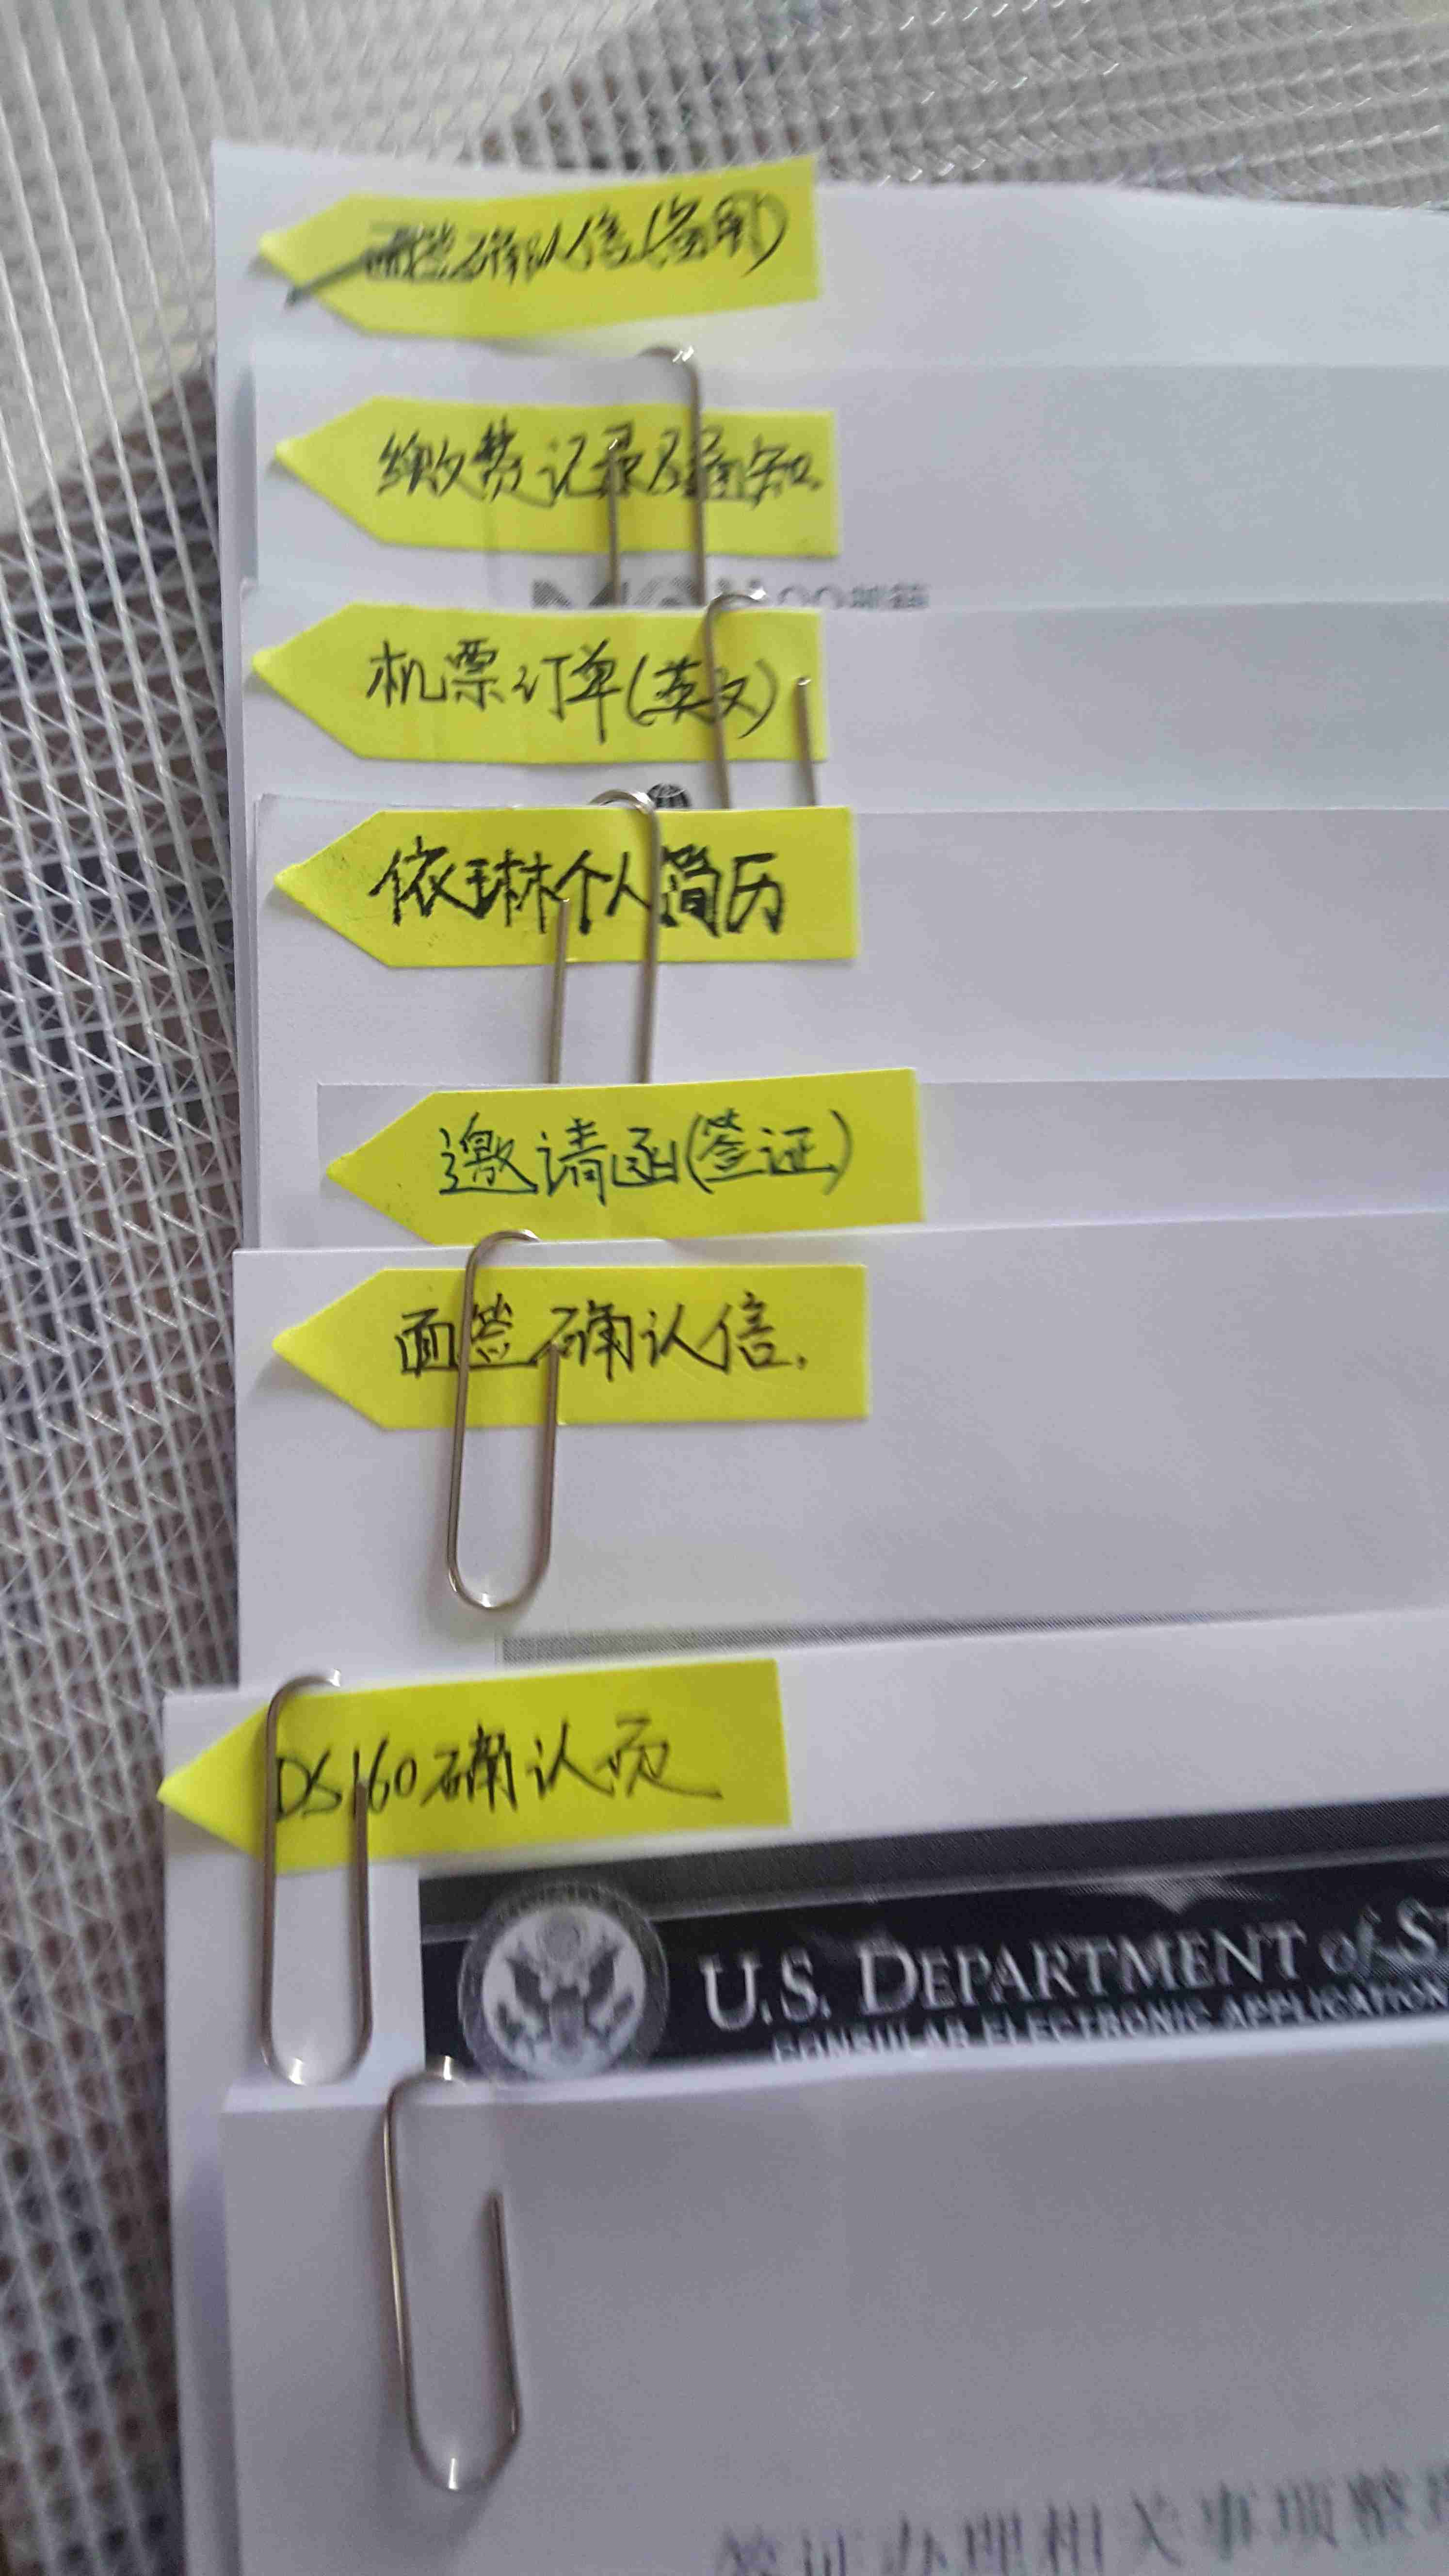 面签确认信(备用)
缴费记录及通知.
QQ邮箱
机票订单(英文)
依琳个人简历
邀请函(签证)
面签确认信.
DS160确认页
U.S. DEPARTMENT of ST
CONSULAR ELECTRONIC APPLICATION
签证办理相关事项整理